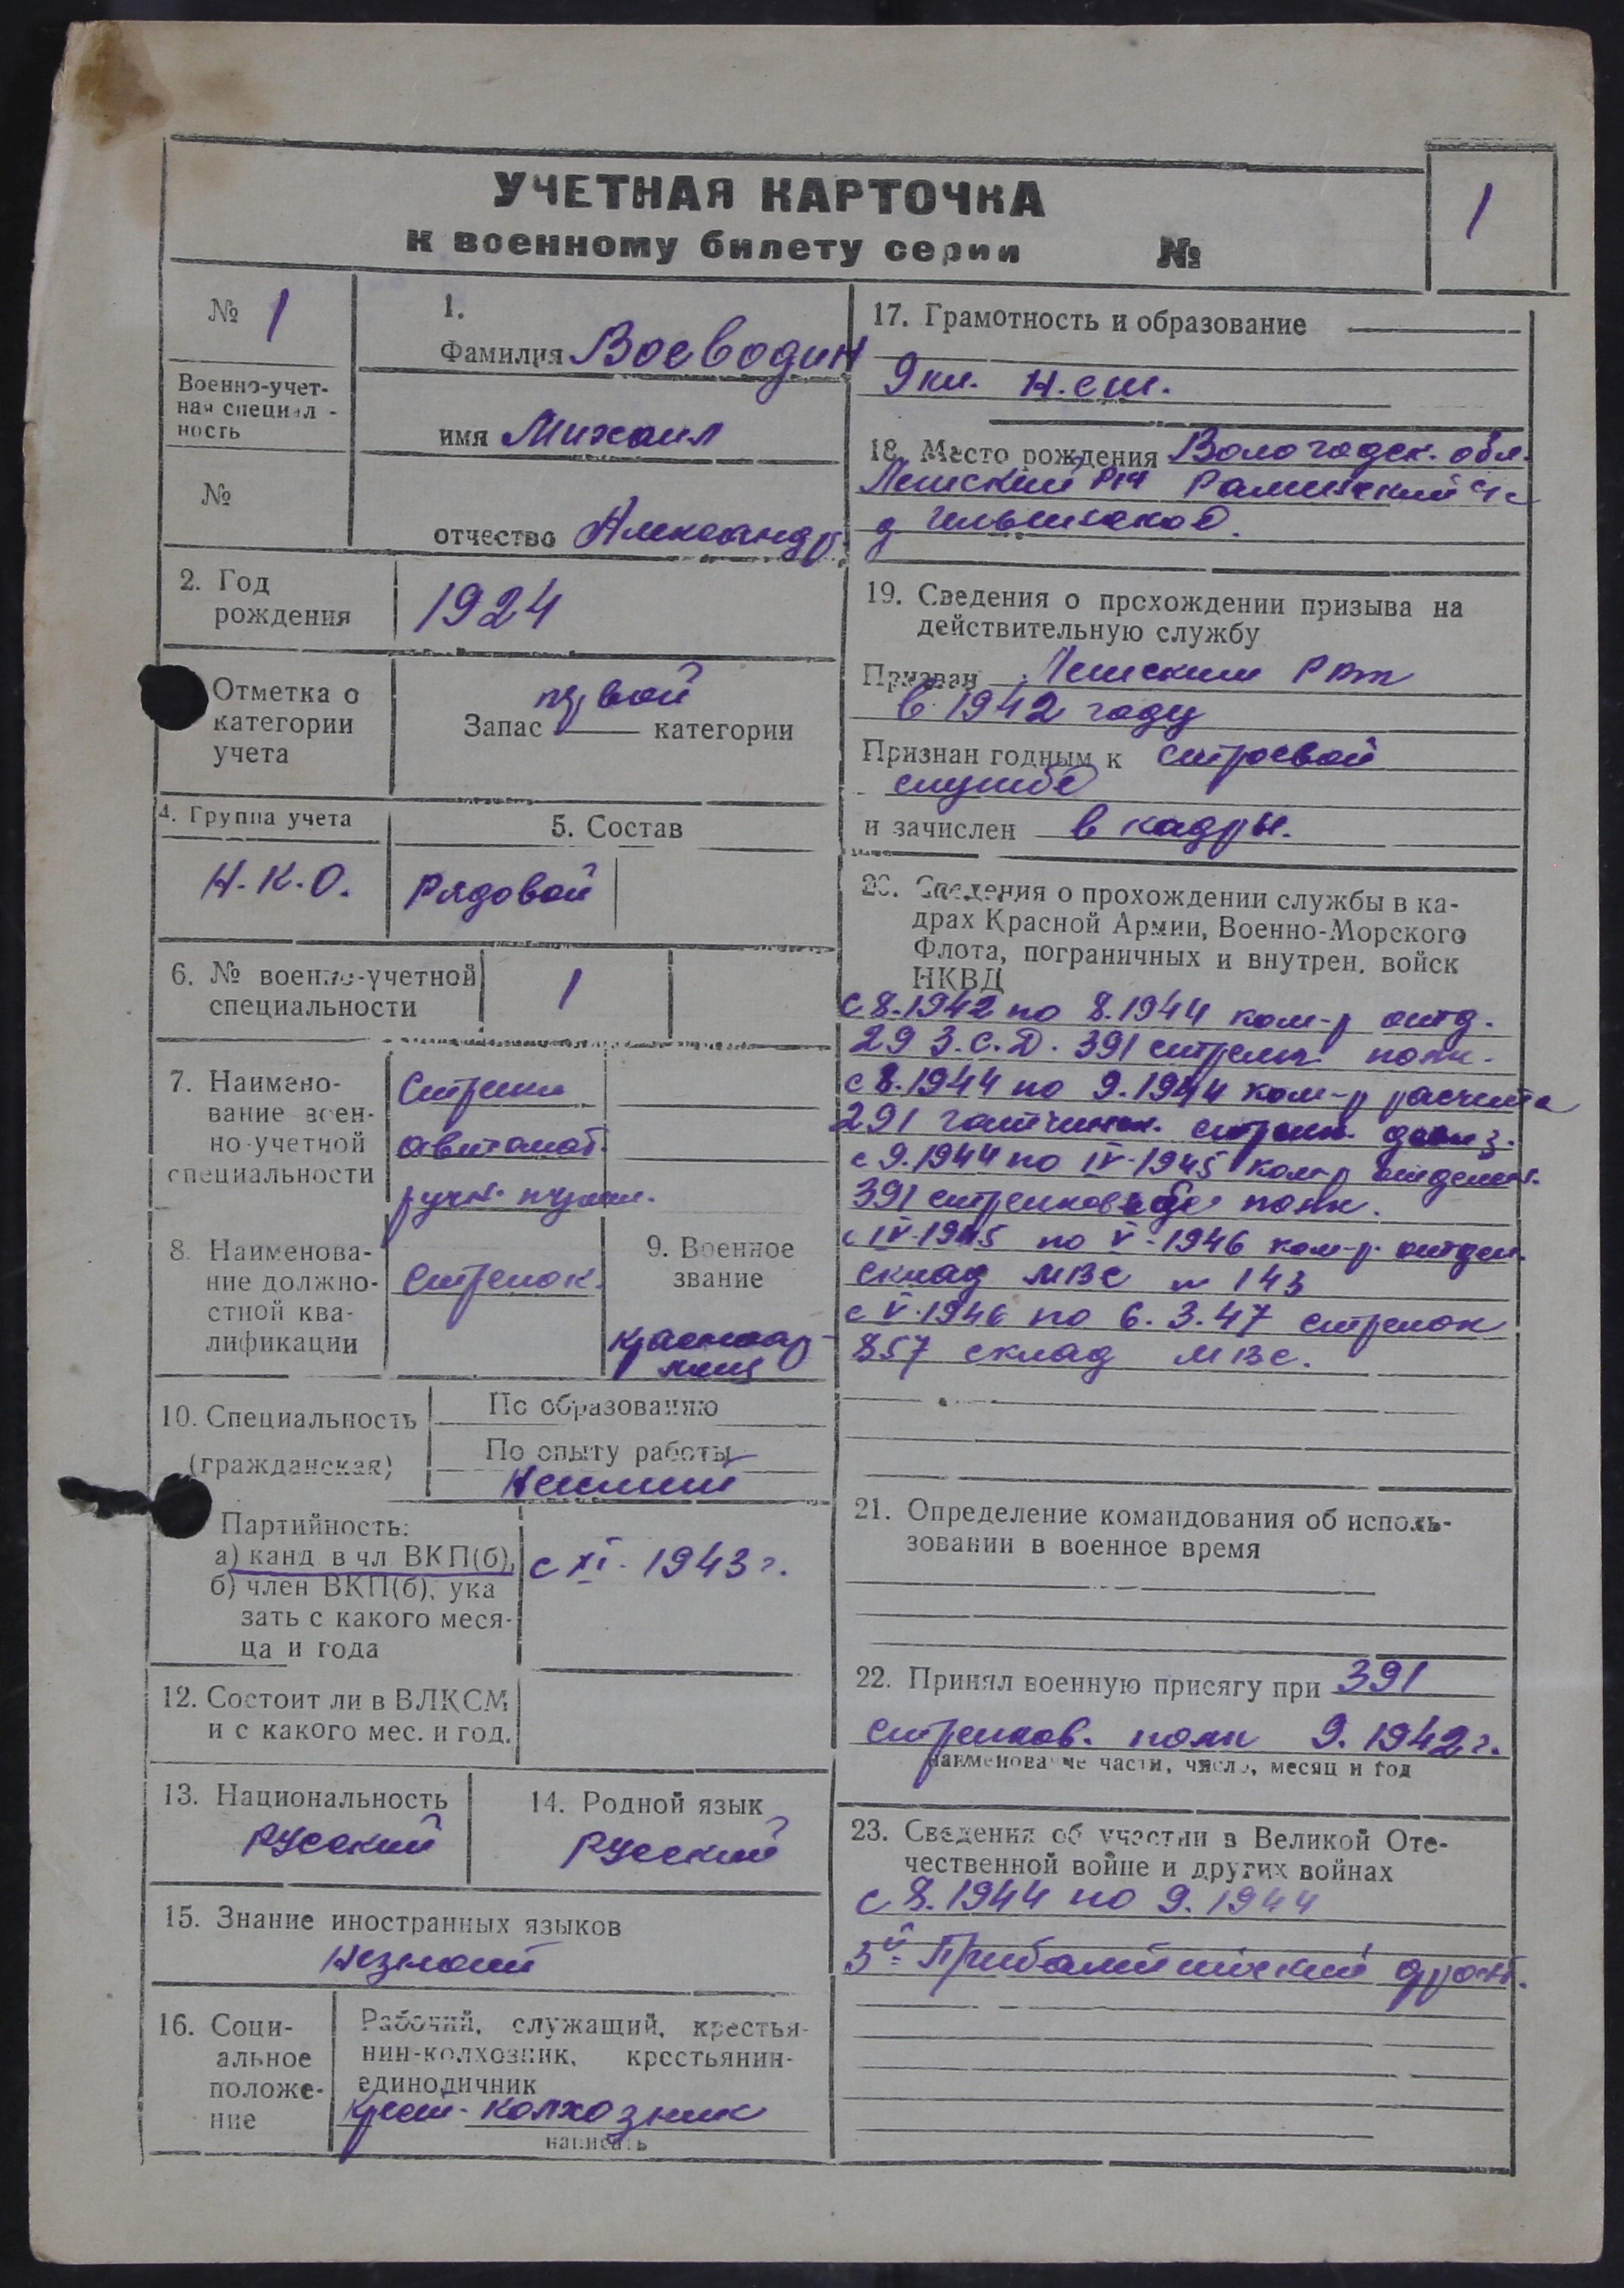 УЧЕТНАЯ КАРТОЧКА
к военному билету серии №
1
№ 1
Военно-учет-
ная специал -
ность
№
1.
Фамилия Воеводин
имя Михаил
отчество Александр.
2. Год
рождения
1924
Отметка о
категории
учета
первой
Запас категории
4. Группа учета
Н.К.О.
5. Состав
Рядовой
6. № военно-учетной
специальности
1
7. Наимено-
вание воен-
но-учетной
специальности
Стрелки
автомат.
ручн. пулем.
8. Наименова-
ние должно-
стной ква-
лификации
Стрелок.
9. Военное
звание
красноар-
меец
10. Специальность
(гражданская)
По образованию
По опыту работы
Неимеет
Партийность:
а) канд в чл ВКП(б),
б) член ВКП(б), ука
зать с какого меся-
ца и года
с XI - 1943 г.
12. Состоит ли в ВЛКСМ
и с какого мес. и год.
13. Национальность
Русский
14. Родной язык
Русский
15. Знание иностранных языков
Незнает
16. Соци-
альное
положе-
ние
Рабочий, служащий, крестья-
нин-колхозник, крестьянин-
единоличник
Крест- колхозник
написать
17. Грамотность и образование
9 кл. н.сш.
18. Место рождения Вологодск. обл.
Лешский р-н Раменский с/с
д
19. Сведения о прохождении призыва на
действительную службу
Призван Лешским РВК
в 1942 году
Признан годным к строевой
службе
и зачислен в кадры.
20. Сведения о прохождении службы в ка-
драх Красной Армии, Военно-Морского
Флота, пограничных и внутрен. войск
НКВД
с 8.1942 по 8.1944 ком-р отд.
29 З.С.Д. 391 стрелк. полк.
с 8.1944 по 9.1944 ком-р расчета
291 гатчинск. стрелк. дивиз.
с 9.1944 по IV-1945 ком-р отделен.
391 стрелков полк.
с IV-1945 по V-1946 ком-р. отдел.
склад МВС № 143
с V-1946 по 6.3.47 стрелок
857 склад МВС.
21. Определение командования об исполь-
зовании в военное время
22. Принял военную присягу при 391
стрелков. полк 9.1942 г.
наименование части, число, месяц и год
23. Сведения об участии в Великой Оте-
чественной войне и других войнах
с 8.1944 по 9.1944
3й Прибалтийский фронт.